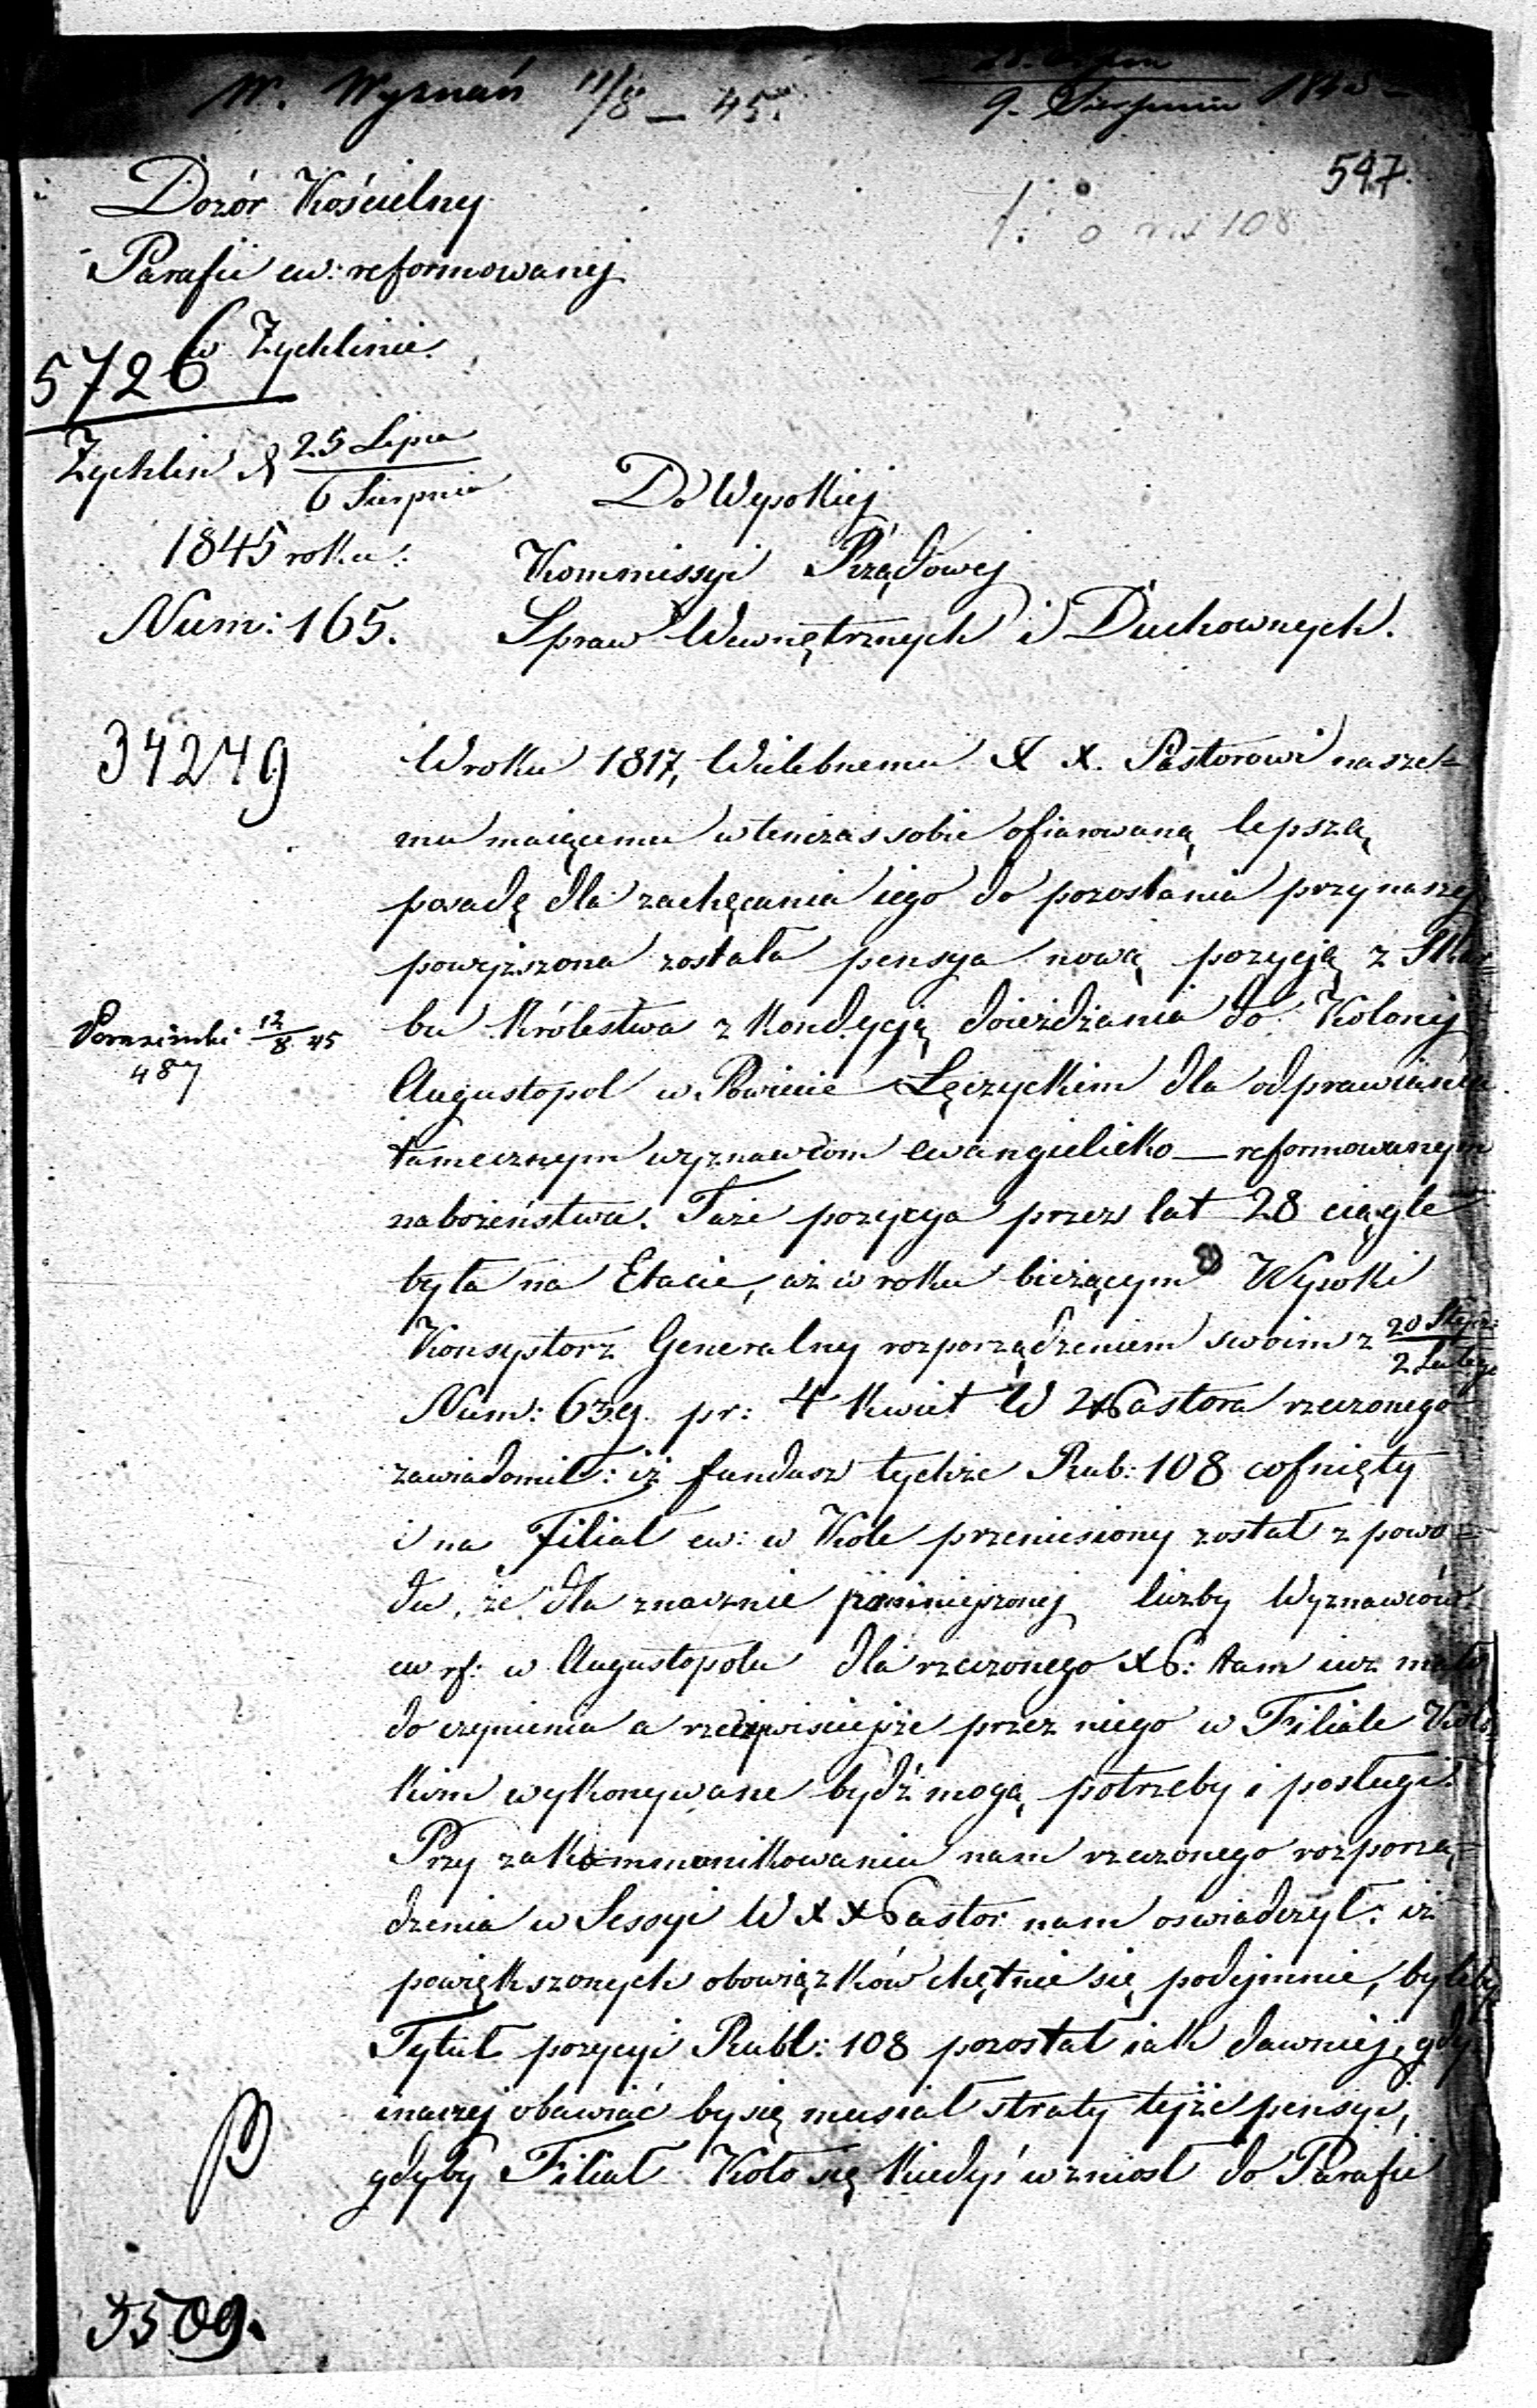 W. Wyznań 11/8 — 45.
9. Sierpnia 1845
547.
108
Dozór Kościelny
Parafii ew: reformowanej
w Żychlinie.
5726
Żychlin d 25 Lipca
6 Sierpnia
1845 roku.
Num: 165.
Do Wysokiej
Kommissyi Rządowej
Spraw Wewnętrznych i Duchownych.
34249
W roku 1817, Wielebnemu X X. Pastorowi nasze=
mu maiącemu wtenczas sobie ofiarowaną lepszą
posadę dla zachęcania iego do pozostania przy naszej
powyższona została pensya nową pozycją z Skar=
bu Królestwa z kondycją doieżdżania do Kolonij
12/8 45
487
Augustopol w Powiecie Łęczyckim dla odprawiania
tamecznym wyznawcom ewangielicko — reformowanym
nabożeństwa. Taże pozycya przez lat 28 ciągle
była na Etacie, aż w roku bieżącym Wysoki
Konsystorz Generalny rozporządzeniem swoim z 20 Stycz:
2 Lutego
Num: 639. pr: 4 Kwiet W X Pastora rzeczonego
zawiadomił: iż fundusz tychże Rub: 108 cofnięty
i na Filiał ew: w Kole przeniesiony został z powo=
du, że dla znacznie pomniejszonej liczby Wyznawców
ew rf: w Augustopolu dla rzeczonego XP: tam iuż mało
do czynienia a rzeczywiściejsze przez niego w Filiale Kols=
kim wykonywane bydź mogą potrzeby i posługi.
Przy zakommunikowaniu nam rzeczonego rozporzą=
dzenia w Sessyi W X X Pastor nam oświadczył: iż
powiększonych obowiązków chętnie się podejmie, byleby
Tytuł pozycyi Rubl: 108 pozostał iak dawniej, gdy
inaczej obawiać by się musiał straty tejże pensyi,
gdyby Filiał Koło się kiedyś wzniosł do Parafii
3509.